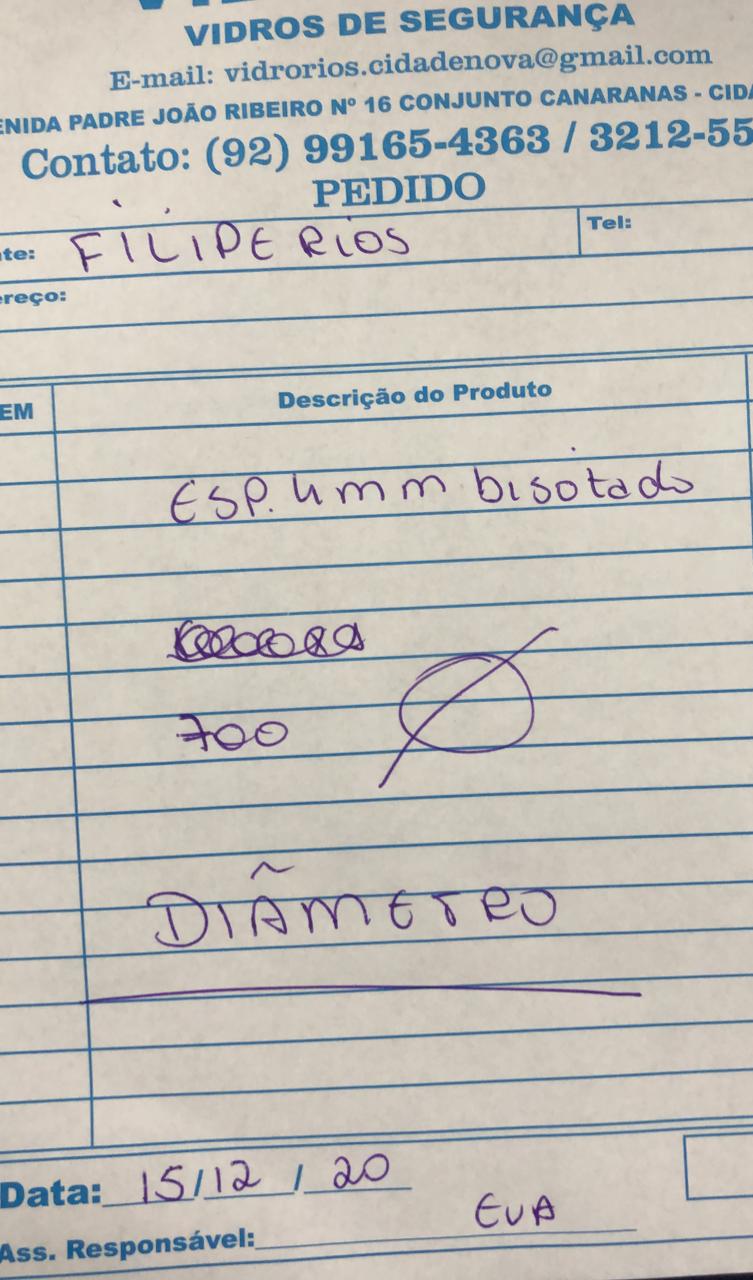 VIDROS DE SEGURANÇA
E-mail: vidrorios.cidadenova@gmail.com
ENIDA PADRE JOÃO RIBEIRO Nº 16 CONJUNTO CANARANAS - CIDA
Contato: (92) 99165-4363 / 3212-55
PEDIDO
te: FILIPE RIOS Tel:
ereço:
EM Descrição do Produto
ESP. 4mm bisotado
700 Ø
DIÃMETRO
Data: 15/12/20
EVA
Ass. Responsável: